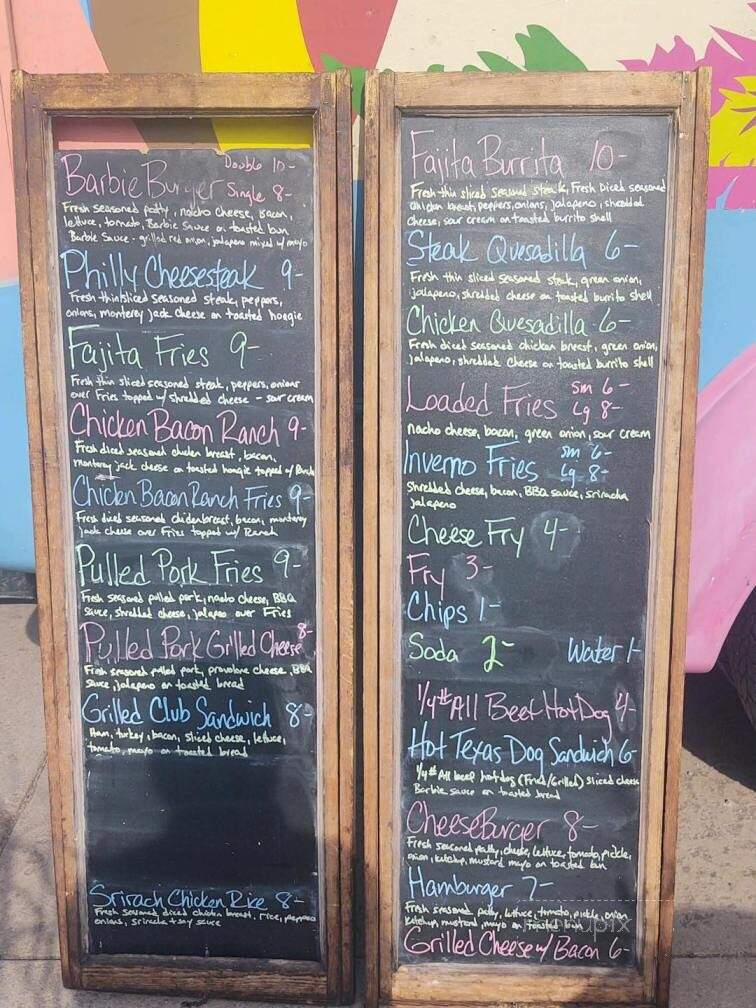 Double 10-
Barbie Burger Single 8-
Fresh seasoned patty, nacho cheese, Bacon,
lettuce, tomato, Barbie Sauce on toasted bun
Barbie Sauce - grilled red onion, jalapeno mixed w/ mayo
Philly Cheesesteak 9-
Fresh thin sliced seasoned steak, peppers,
onions, monterey jack cheese on toasted hoagie
Fajita Fries 9-
Fresh thin sliced seasoned steak, peppers, onions
over Fries topped w/ shredded cheese - sour cream
Chicken Bacon Ranch 9-
Fresh diced seasoned chicken breast, bacon,
monterey jack cheese on toasted hoagie topped w/ Ranch
Chicken Bacon Ranch Fries 9-
Fresh diced seasoned chicken breast, bacon, monterey
jack cheese over Fries topped w/ Ranch
Pulled Pork Fries 9-
Fresh seasoned pulled pork, nacho cheese, BBQ
sauce, shredded cheese, jalapeno over Fries
Pulled Pork Grilled Cheese 8-
Fresh seasoned pulled pork, provolone cheese, BBQ
sauce, jalapeno on toasted bread
Grilled Club Sandwich 8-
Ham, turkey, bacon, sliced cheese, lettuce,
tomato, mayo on toasted bread
Srirach Chicken Rice 8-
Fresh seasoned diced chicken breast, rice, peppers
onions, sriracha + soy sauce
Fajita Burrita 10-
Fresh thin sliced seasoned steak, Fresh Diced seasoned
chicken breast, peppers, onions, jalapeno, shredded
cheese, sour cream on toasted burrito shell
Steak Quesadilla 6-
Fresh thin sliced seasoned steak, green onion,
jalapeno, shredded cheese on toasted burrito shell
Chicken Quesadilla 6-
Fresh diced seasoned chicken breast, green onion,
jalapeno, shredded cheese on toasted burrito shell
Loaded Fries sm 6-
Lg 8-
nacho cheese, bacon, green onion, sour cream
Inverno Fries sm 6-
Lg 8-
Shredded cheese, bacon, BBQ sauce, sriracha
jalapeno
Cheese Fry 4-
Fry 3-
Chips 1-
Soda 2- Water 1-
1/4# All Beef Hot Dog 4-
Hot Texas Dog Sandwich 6-
1/4# All beef hotdog (Fried/Grilled) sliced cheese
Barbie sauce on toasted bread
CheeseBurger 8-
Fresh seasoned patty, cheese, lettuce, tomato, pickle,
onion, ketchup, mustard mayo on toasted bun
Hamburger 7-
Fresh seasoned patty, lettuce, tomato, pickle, onion
ketchup, mustard, mayo on toasted bun
Grilled Cheese w/ Bacon 6-